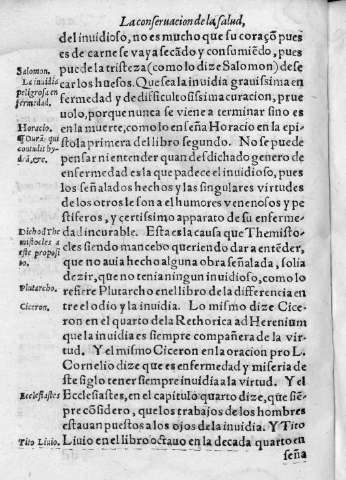 La conseruacion de la salud,
del inuidioso, no es mucho que su coraçõ pues
es de carne se vaya secãdo y consumiẽdo, pues
Salomon.
puede la tristeza (como lo dize Salomon) dese
La inuidia peligrosa enfermedad.
car los huesos. Que sea la inuidia grauissima en
fermedad y de difficultosissima curacion, prue
uolo, porque nunca se viene a terminar sino es
Horacio.
en la muerte, como lo enseña Horacio en la epi
¶ Durã, qui contulit hydrã, &c.
stola primera del libro segundo. No se puede
pensar ni entender quan desdichado genero de
enfermedad es la que padece el inuidioso, pues
los señalados hechos y las singulares virtudes
de los otros le son a el humores venenosos y pe
stiferos, y certissimo apparato de su enferme-
Dicho d Themistocles a este proposito.
dad incurable. Esta es la causa que Themisto-
cles siendo mancebo queriendo dar a entẽder,
que no auia hecho alguna obra señalada, solia
dezir, que no tenia ningun inuidioso, como lo
Plutarcho.
refiere Plutarcho en el libro de la differencia en
Ciceron.
tre el odio y la inuidia. Lo mismo dize Cice-
ron en el quarto de la Rethorica ad Herenium
que la inuidia es siempre compañera de la vir-
tud. Y el mismo Ciceron en la oracion pro L.
Cornelio dize que es enfermedad y miseria de
este siglo tener siempre inuidia a la virtud. Y el
Ecclesiastes
Ecclesiastes, en el capitulo quarto dize, que siẽ-
pre cõsidero, que los trabajos de los hombres
estauan puestos a los ojos de la inuidia. Y Tito
Tito Liuio.
Liuio en el libro octauo en la decada quarto en
seña